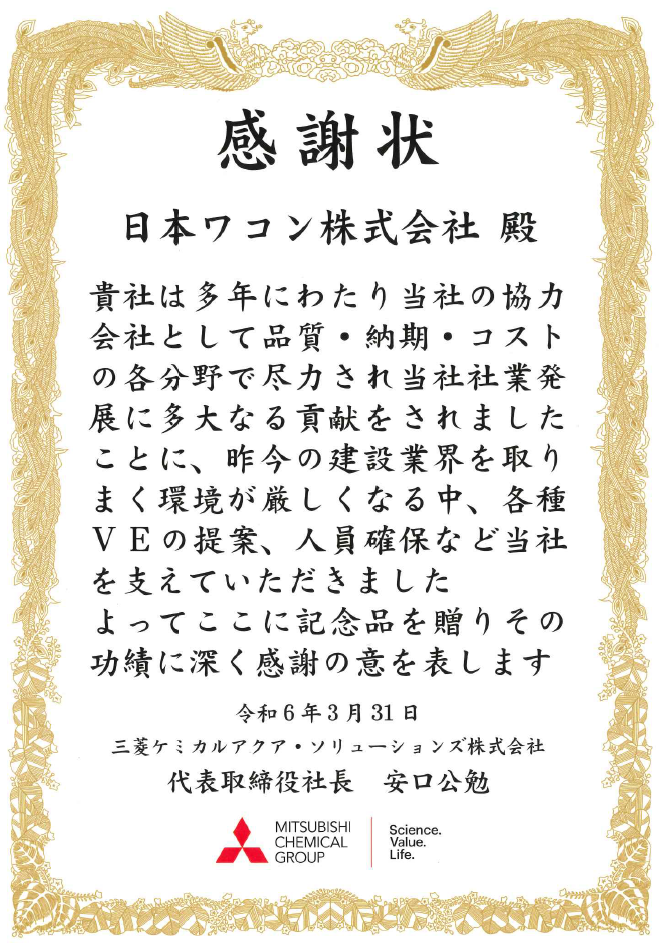 感謝状
日本ワコン株式会社 殿
貴社は多年にわたり当社の協力
会社として品質・納期・コスト
の各分野で尽力され当社社業発
展に多大なる貢献をされました
ことに、昨今の建設業界を取り
まく環境が厳しくなる中、各種
ＶＥの提案、人員確保など当社
を支えていただきました
よってここに記念品を贈りその
功績に深く感謝の意を表します
令和6年3月31日
三菱ケミカルアクア・ソリューションズ株式会社
代表取締役社長　安口公勉
MITSUBISHI
CHEMICAL
GROUP
Science.
Value.
Life.